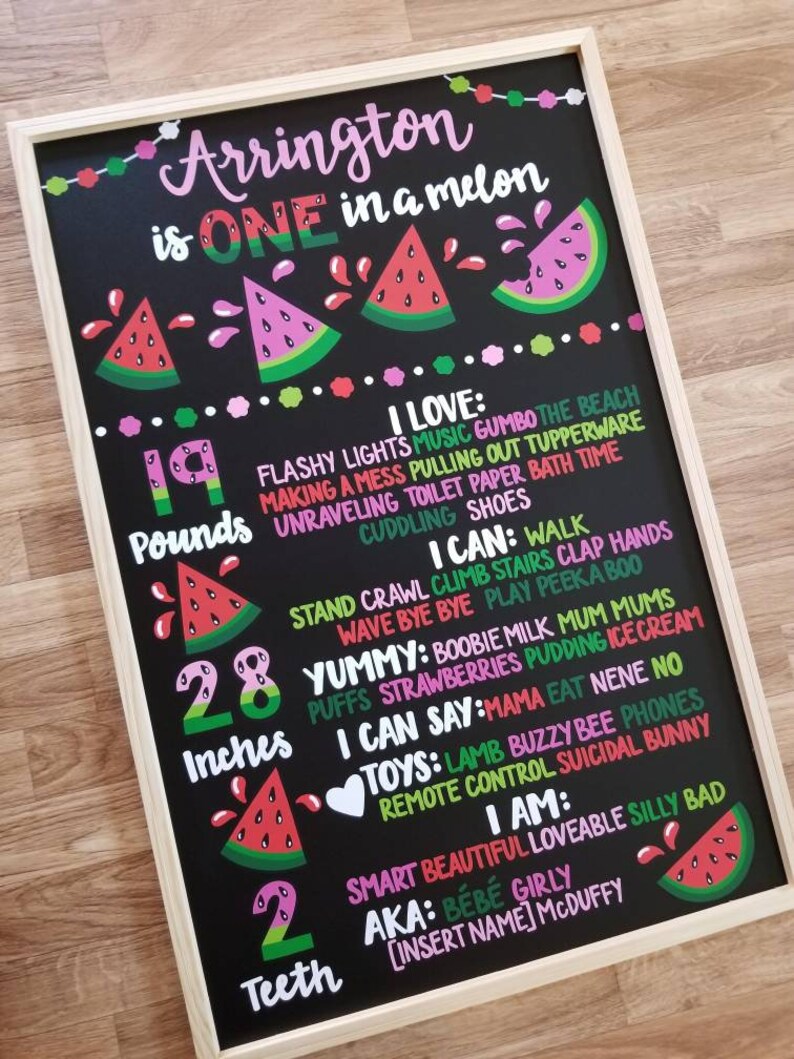 Arrington
is ONE in a melon
19
Pounds
28
Inches
2
Teeth
I LOVE:
FLASHY LIGHTS MUSIC GUMBO THE BEACH
MAKING A MESS PULLING OUT TUPPERWARE
UNRAVELING TOILET PAPER BATH TIME
CUDDLING SHOES
I CAN: WALK
STAND CRAWL CLIMB STAIRS CLAP HANDS
WAVE BYE BYE PLAY PEEK A BOO
YUMMY: BOOBIE MILK MUM MUMS
PUFFS STRAWBERRIES PUDDING ICE CREAM
I CAN SAY: MAMA EAT NENE NO
TOYS: LAMB BUZZY BEE PHONES
REMOTE CONTROL SUICIDAL BUNNY
I AM:
SMART BEAUTIFUL LOVEABLE SILLY BAD
AKA: BÉBÉ GIRLY
[INSERT NAME] MCDUFFY